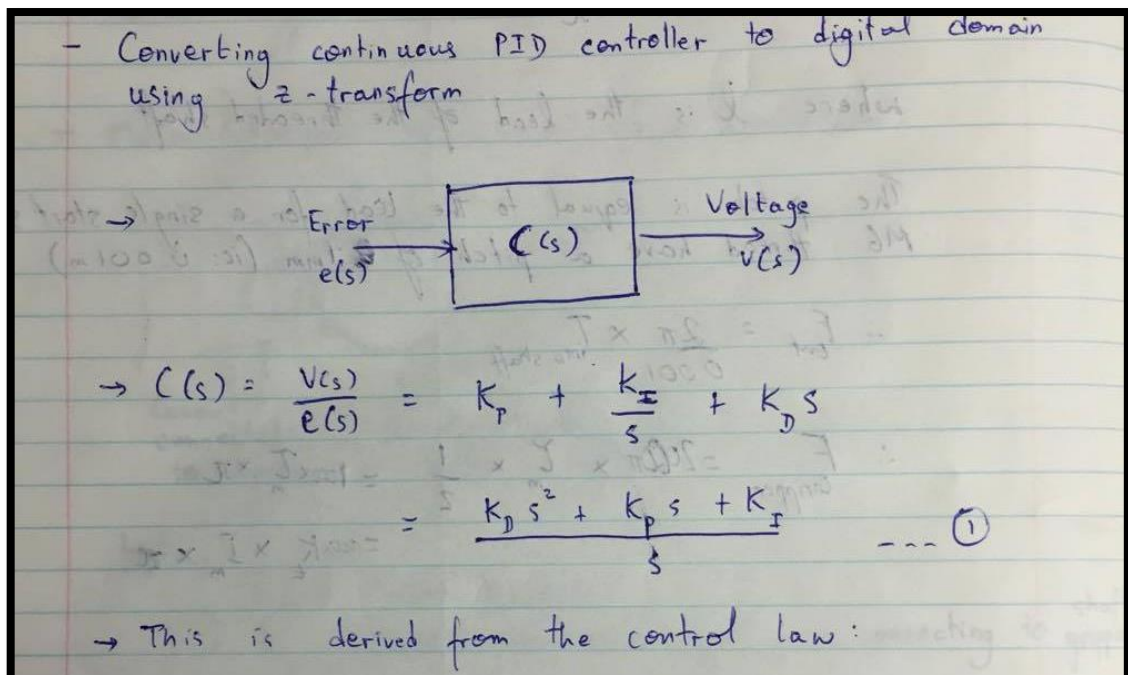 - Converting continuous PID controller to digital domain
using z-transform
→ Error e(s) C(s) Voltage v(s)
→ C(s) = V(s)/e(s) = K_P + K_I/s + K_D s
= (K_D s² + K_P s + K_I)/s --- ①
→ This is derived from the control law: